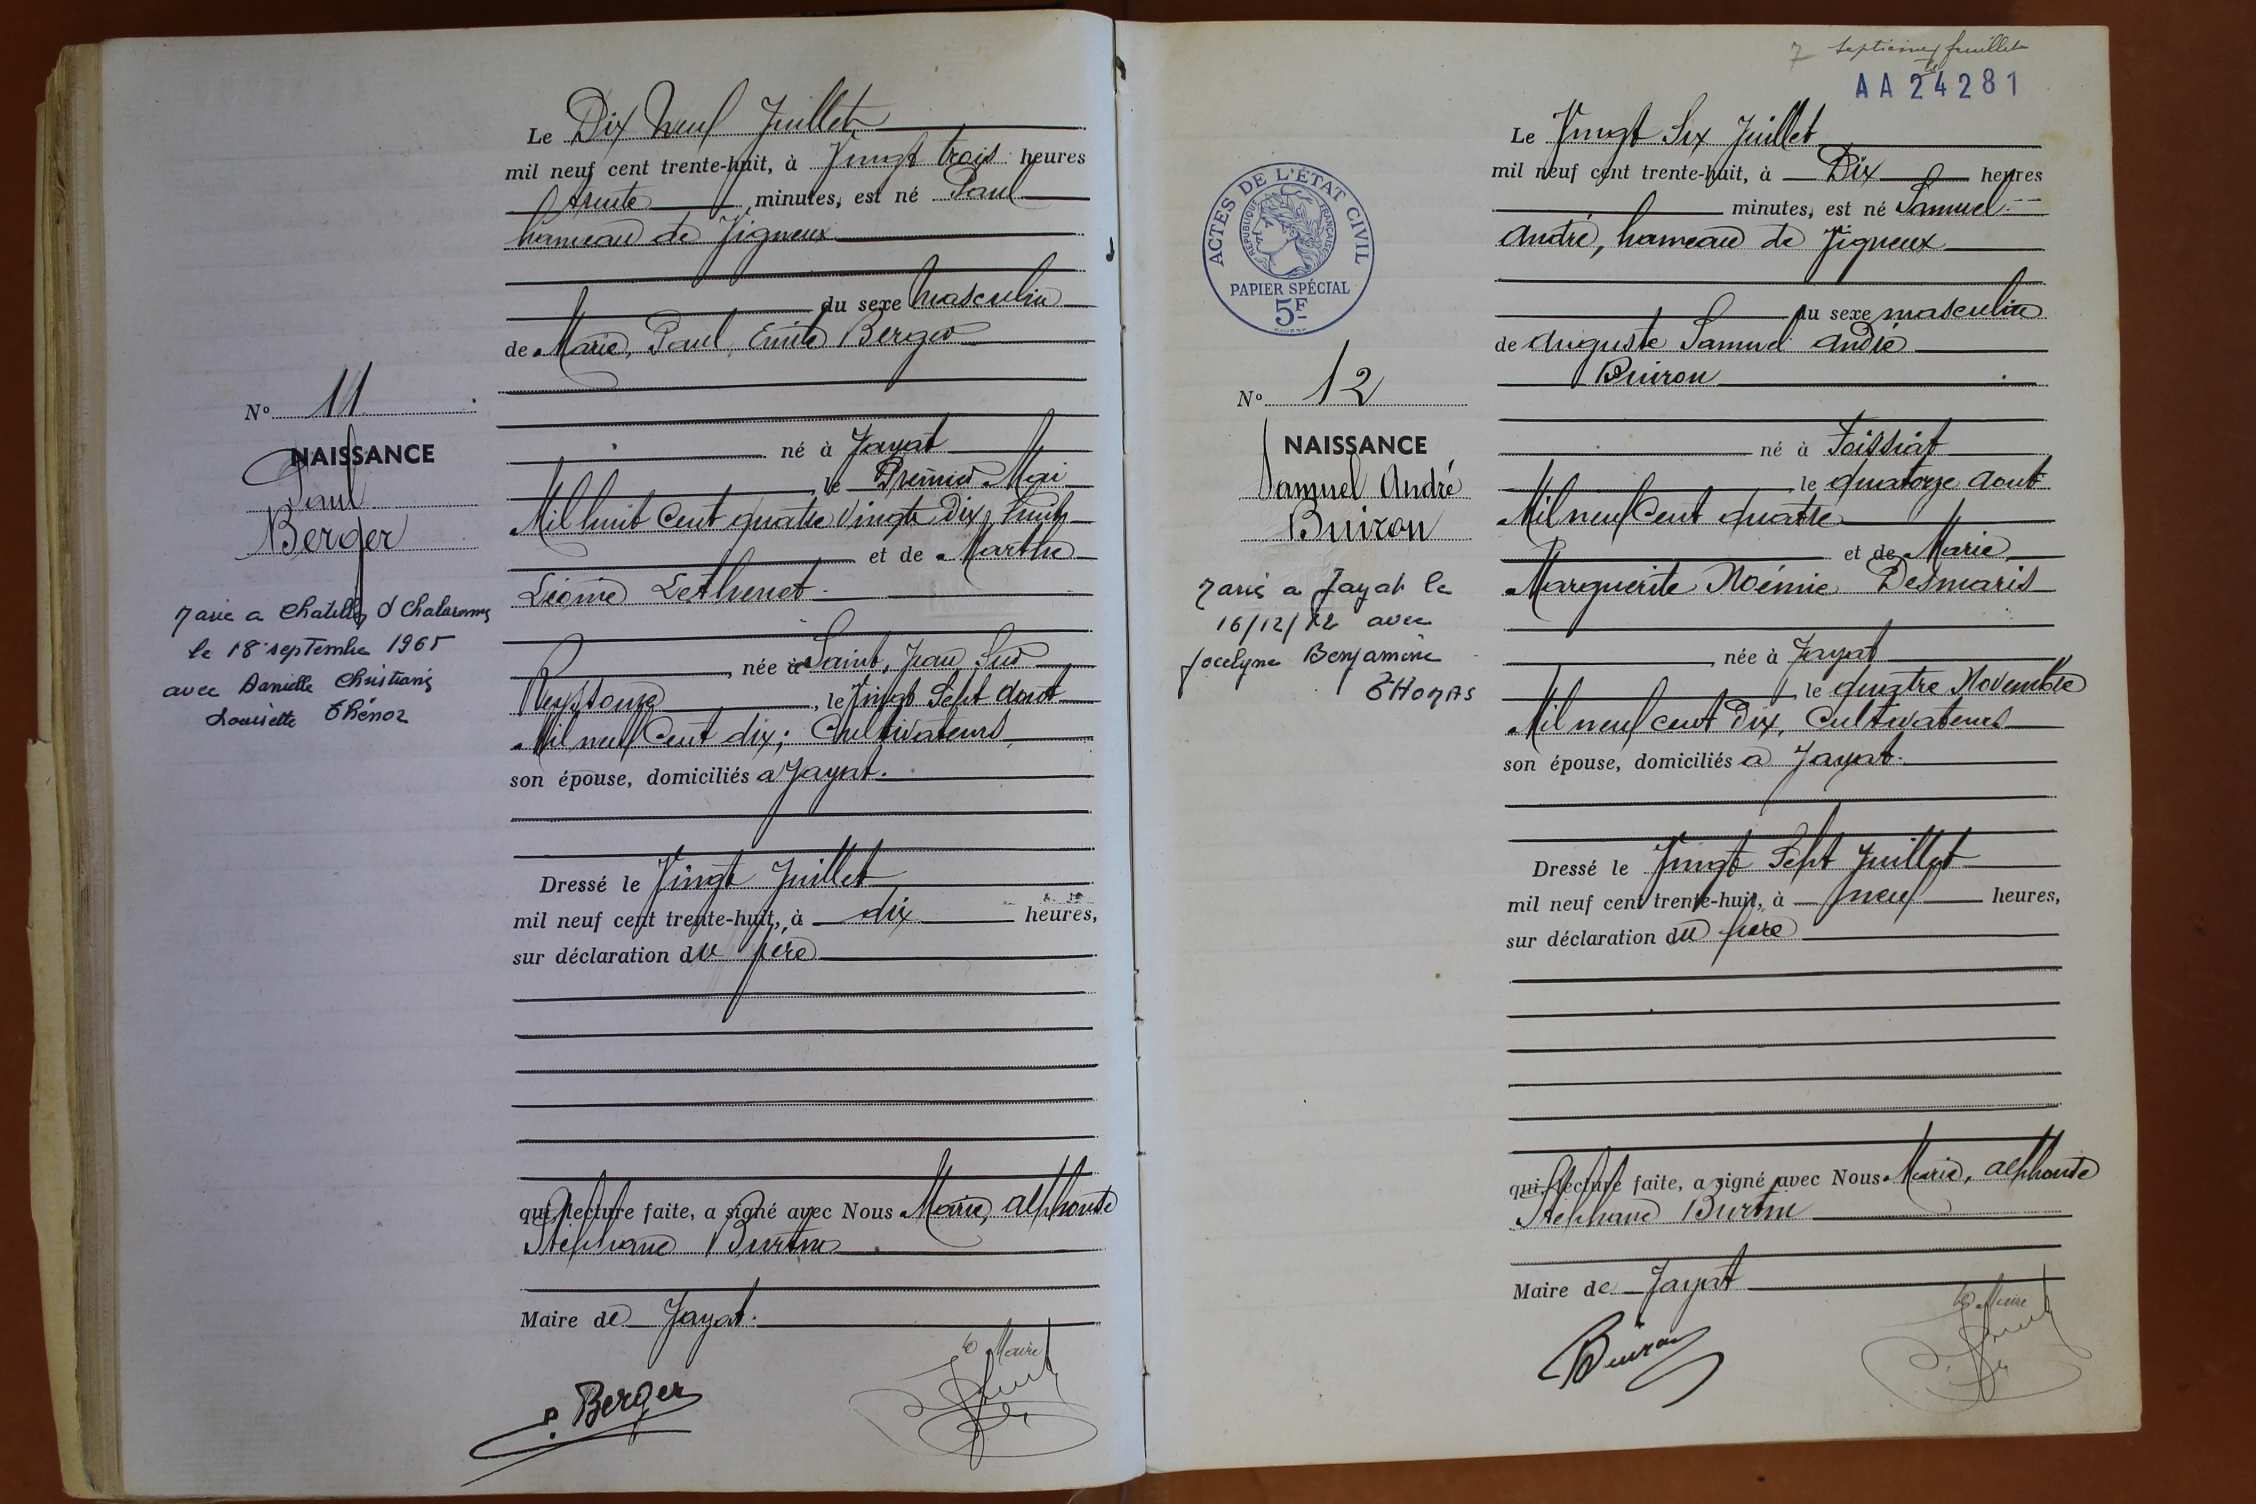 Le Dix Neuf Juillet
mil neuf cent trente-huit, à Vingt trois heures
trente minutes, est né Paul
hameau de Vigneux
du sexe masculin
de Marie, Paul, Emile Berger
N° 11
NAISSANCE
Paul
Berger
né à Jayat
le Premier Mai
Mil huit Cent quatre vingt Dix huit
et de Marthe
Léonie Lethenet
Marié a Chatillon s/ Chalaronne
le 18 septembre 1965
avec Danielle Christiane
Louisette Thénoz
née à Saint, Jean, Sur
Reyssouze, le Vingt Sept Aout
Mil neuf Cent dix; Cultivateurs
son épouse, domiciliés a Jayat.
Dressé le Vingt Juillet
mil neuf cent trente-huit, à dix heures,
sur déclaration du père
qui, lecture faite, a signé avec Nous Marie, Alphonse
Stéphane Burtin
Maire de Jayat.
le Maire
P. Berger
7 septième feuillet
AA 24281
Le Vingt Six Juillet
mil neuf cent trente-huit, à Dix heures
minutes, est né Samuel
André, hameau de Vigneux
ACTES DE L'ÉTAT CIVIL
RÉPUBLIQUE FRANÇAISE
PAPIER SPÉCIAL
5F
du sexe masculin
de Auguste Samuel André
Buiron
N° 12
NAISSANCE
Samuel André
Buiron
né à Foissiat
le quatorze Aout
Mil neuf Cent quatre
et de Marie
Marguerite Noémie Desmaris
Marié a Jayat le
16/12/72 avec
Jocelyne Benjamine
THOMAS
née à Jayat
le quatre Novembre
Mil neuf cent Dix, Cultivateurs
son épouse, domiciliés a Jayat.
Dressé le Vingt Sept Juillet
mil neuf cent trente-huit, à neuf heures,
sur déclaration du père
qui, lecture faite, a signé avec Nous Marie, Alphonse
Stéphane Burtin
Maire de Jayat
le Maire
Buiron